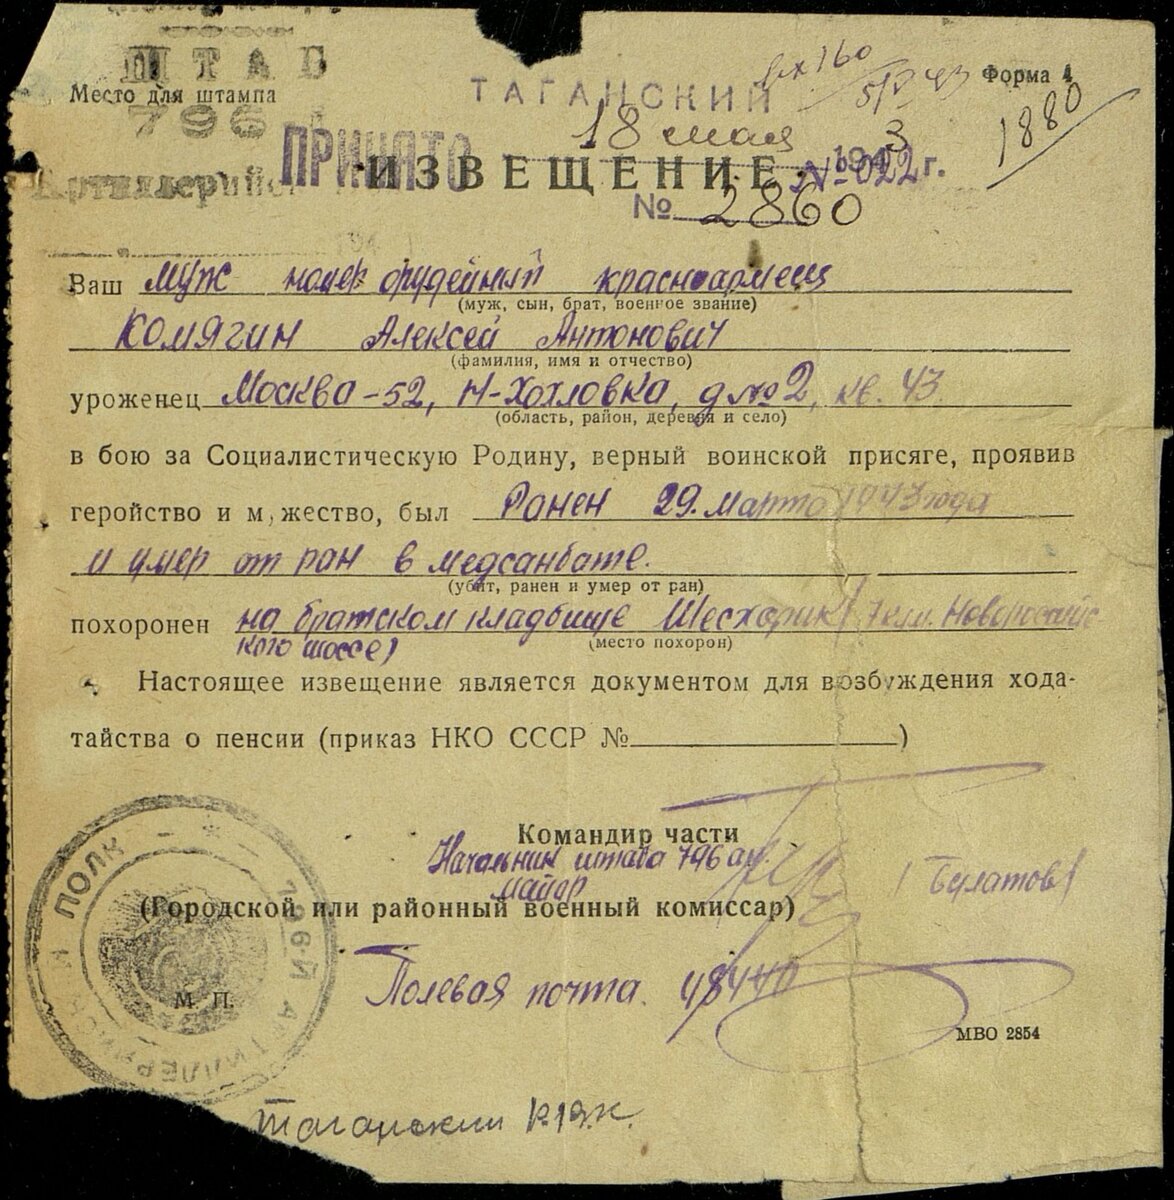 ШТАБ
Место для штампа
796
Артиллерийс
ТАГАНСКИЙ
вх 160
Форма 4
1880
ПРИНЯТО
18 мая 1943 г.
ИЗВЕЩЕНИЕ № 022
№ 2860
Ваш муж номер орудейный красноармеец
(муж, сын, брат, военное звание)
Комягин Алексей Антонович
(фамилия, имя и отчество)
уроженец Москва-52, Н-Хохловка, д №2, кв. 43
(область, район, деревня и село)
в бою за Социалистическую Родину, верный воинской присяге, проявив
геройство и мужество, был Ранен 29. марта 1943 года
и умер от ран в медсанбате.
(убит, ранен и умер от ран)
похоронен на братском кладбище Шесхарик (7 клм. Новороссийс
кого шоссе)
(место похорон)
Настоящее извещение является документом для возбуждения хода-
тайства о пенсии (приказ НКО СССР № )
Командир части
Начальник штаба 796 ап.
майор
(Булатов)
(Городской или районный военный комиссар)
Полевая почта 48440
М. П.
796-Й АРТИЛЛЕРИЙСКИЙ ПОЛК
МВО 2854
Таганский